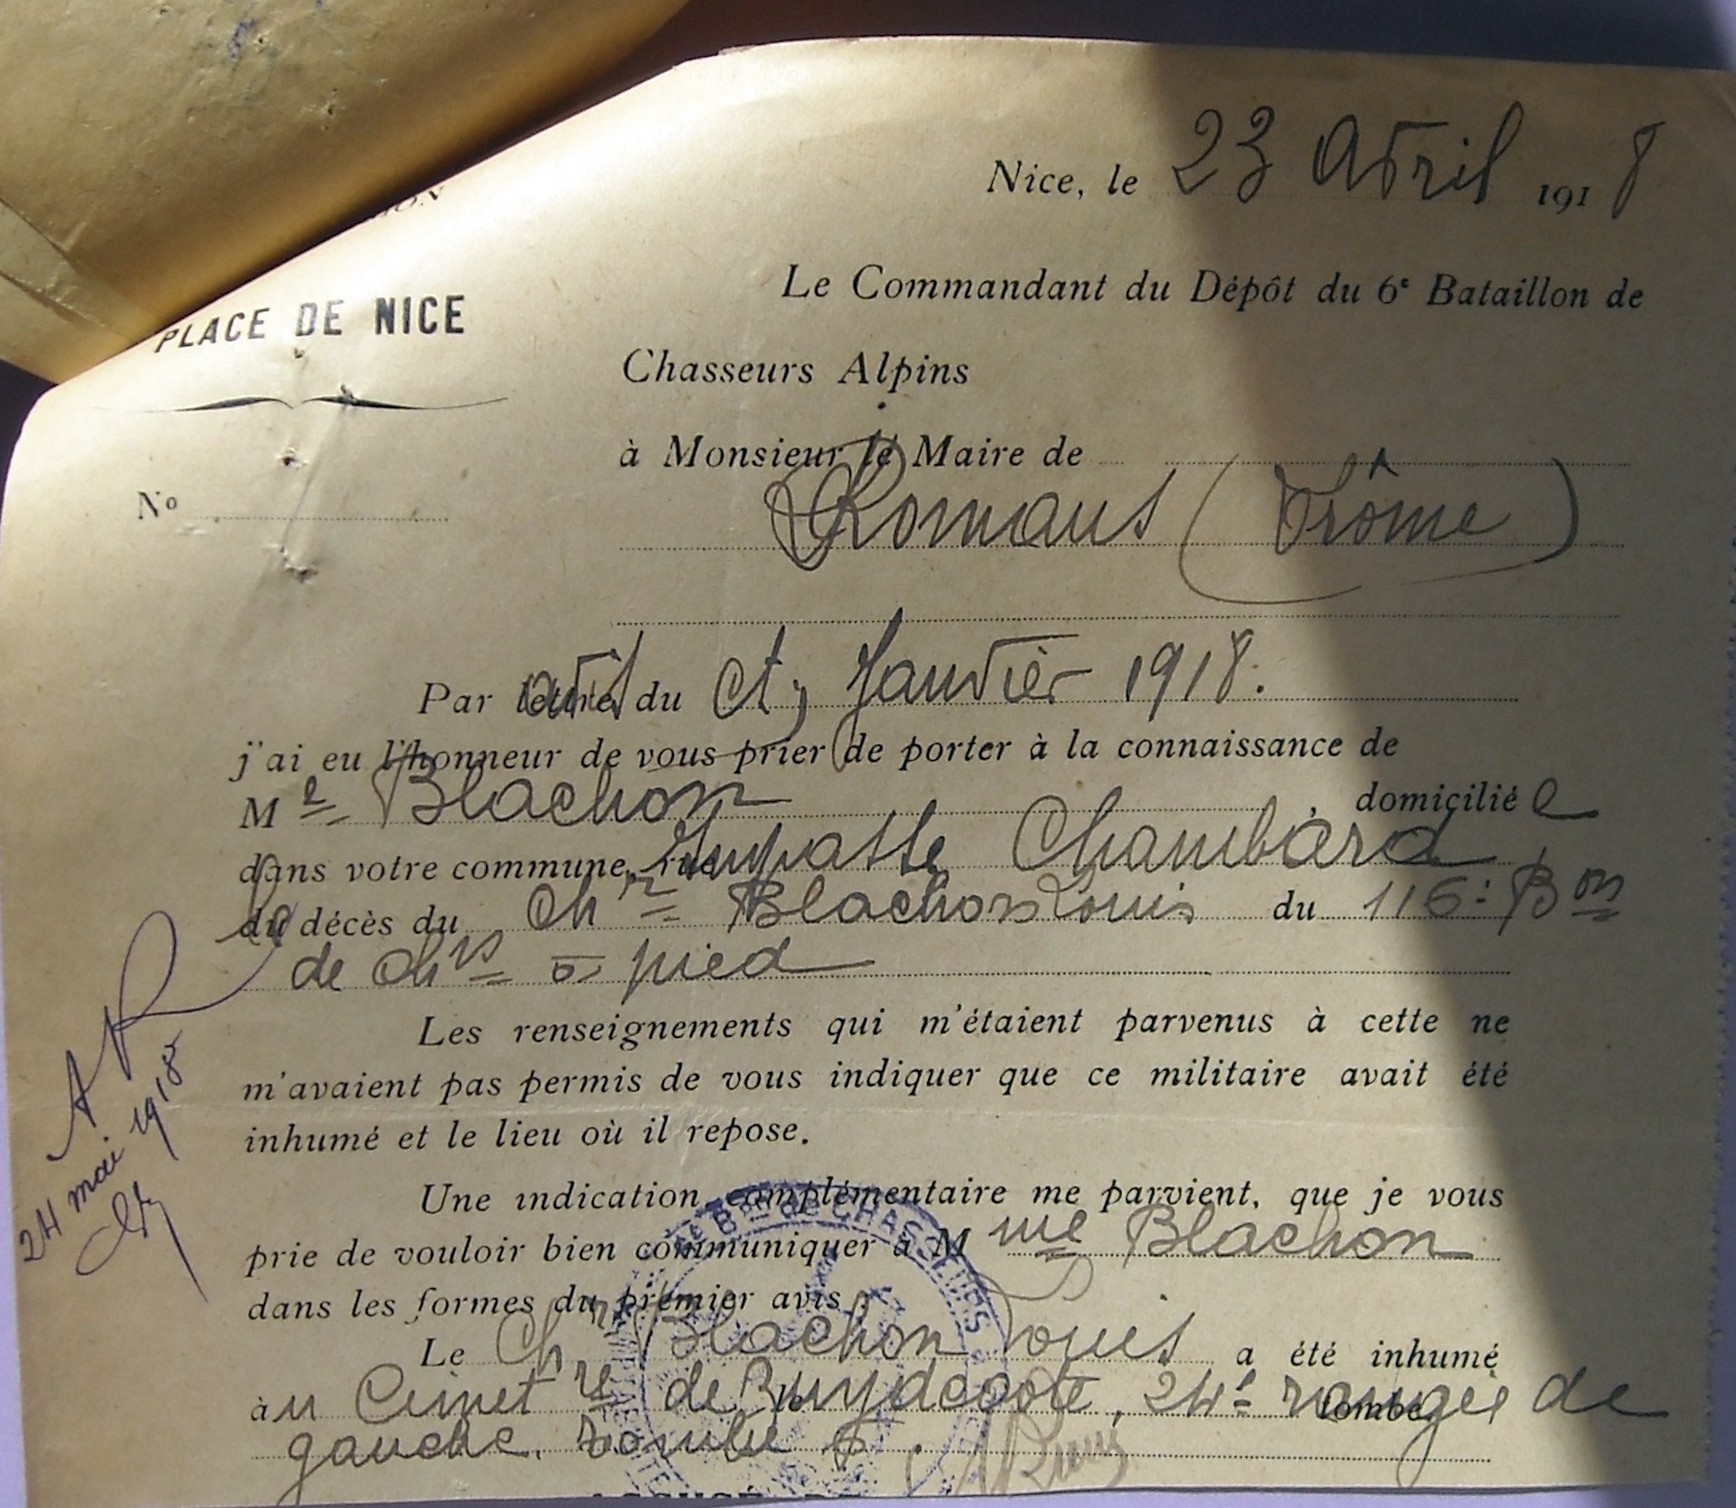 Nice, le 23 Avril 1918
PLACE DE NICE
Le Commandant du Dépôt du 6e Bataillon de
Chasseurs Alpins
à Monsieur le Maire de
No
Romans (Drôme)
Par avis du Janvier 1918.
j'ai eu l'honneur de vous prier de porter à la connaissance de
Me Blachon, domicilié e
dans votre commune, Impasse Chambard
du décès du Chr Blachon Louis du 116e Bon
de Chrs à pied
Les renseignements qui m'étaient parvenus à cette ne
m'avaient pas permis de vous indiquer que ce militaire avait été
inhumé et le lieu où il repose.
AR
24 mai 1918
Une indication complémentaire me parvient, que je vous
prie de vouloir bien communiquer à Mme Blachon
dans les formes du premier avis :
Le Chr Blachon Louis a été inhumé
àu Cimetre de Zuydcoote, 24e rangée de
gauche, tombe